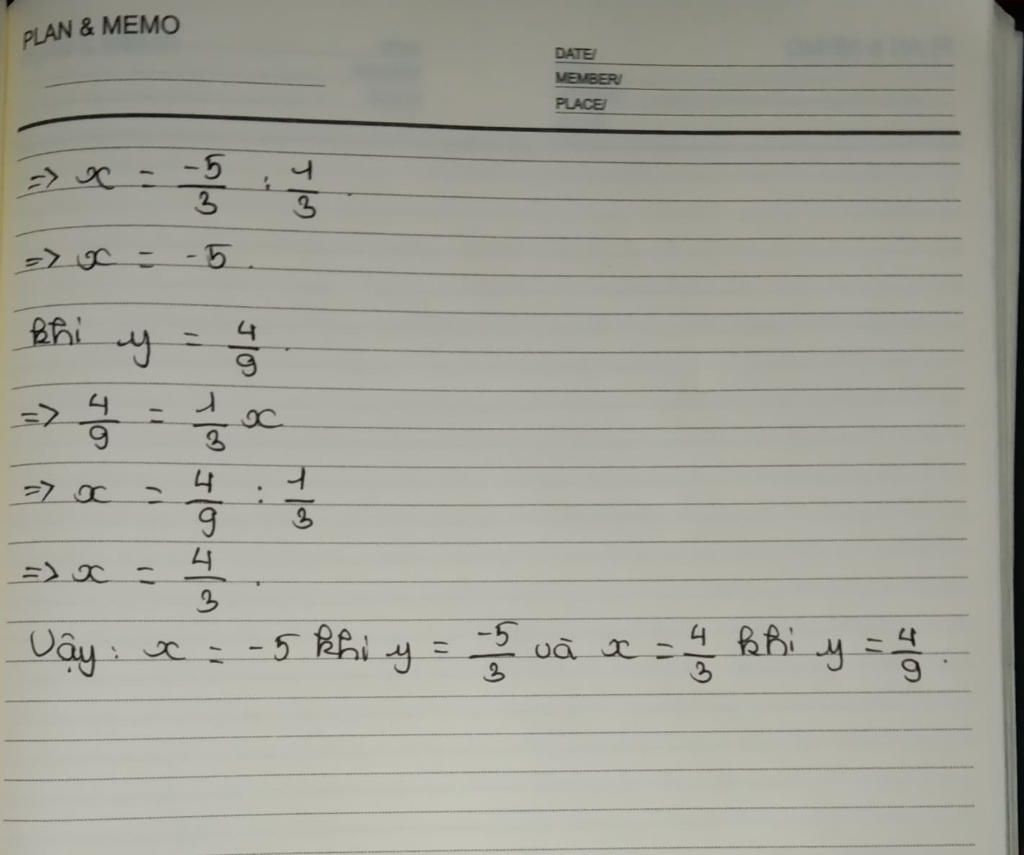 PLAN & MEMO
DATE/
MEMBER/
PLACE/
=> x = -5/3 : 1/3.
=> x = -5.
khi y = 4/9.
=> 4/9 = 1/3 x
=> x = 4/9 : 1/3
=> x = 4/3.
Vậy: x = -5 khi y = -5/3 và x = 4/3 khi y = 4/9.